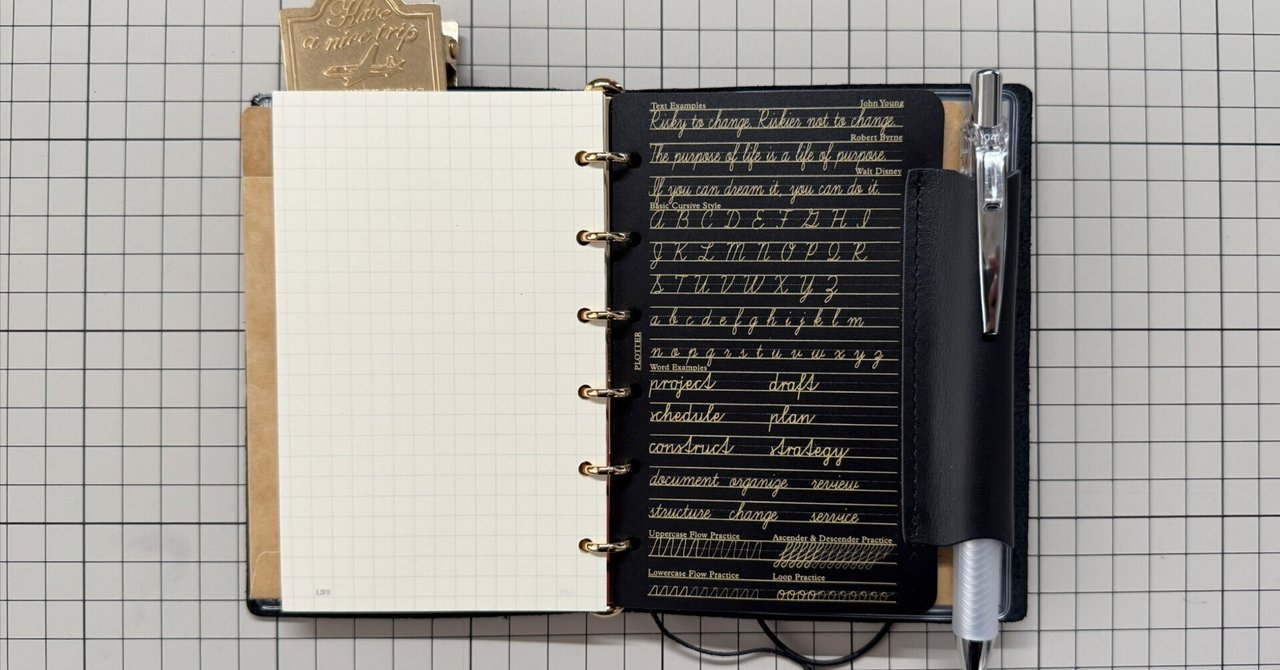 Have
a nice trip
LIFE
Text Examples John Young
Risky to change. Riskier not to change.
Robert Byrne
The purpose of life is a life of purpose.
Walt Disney
If you can dream it, you can do it.
Basic Cursive Style
A B C D E F G H I
J K L M N O P Q R
S T U V W X Y Z
a b c d e f g h i j k l m
n o p q r s t u v w x y z
PLOTTER
Word Examples
project draft
schedule plan
construct strategy
document organize review
structure change service
Uppercase Flow Practice Ascender & Descender Practice
Lowercase Flow Practice Loop Practice